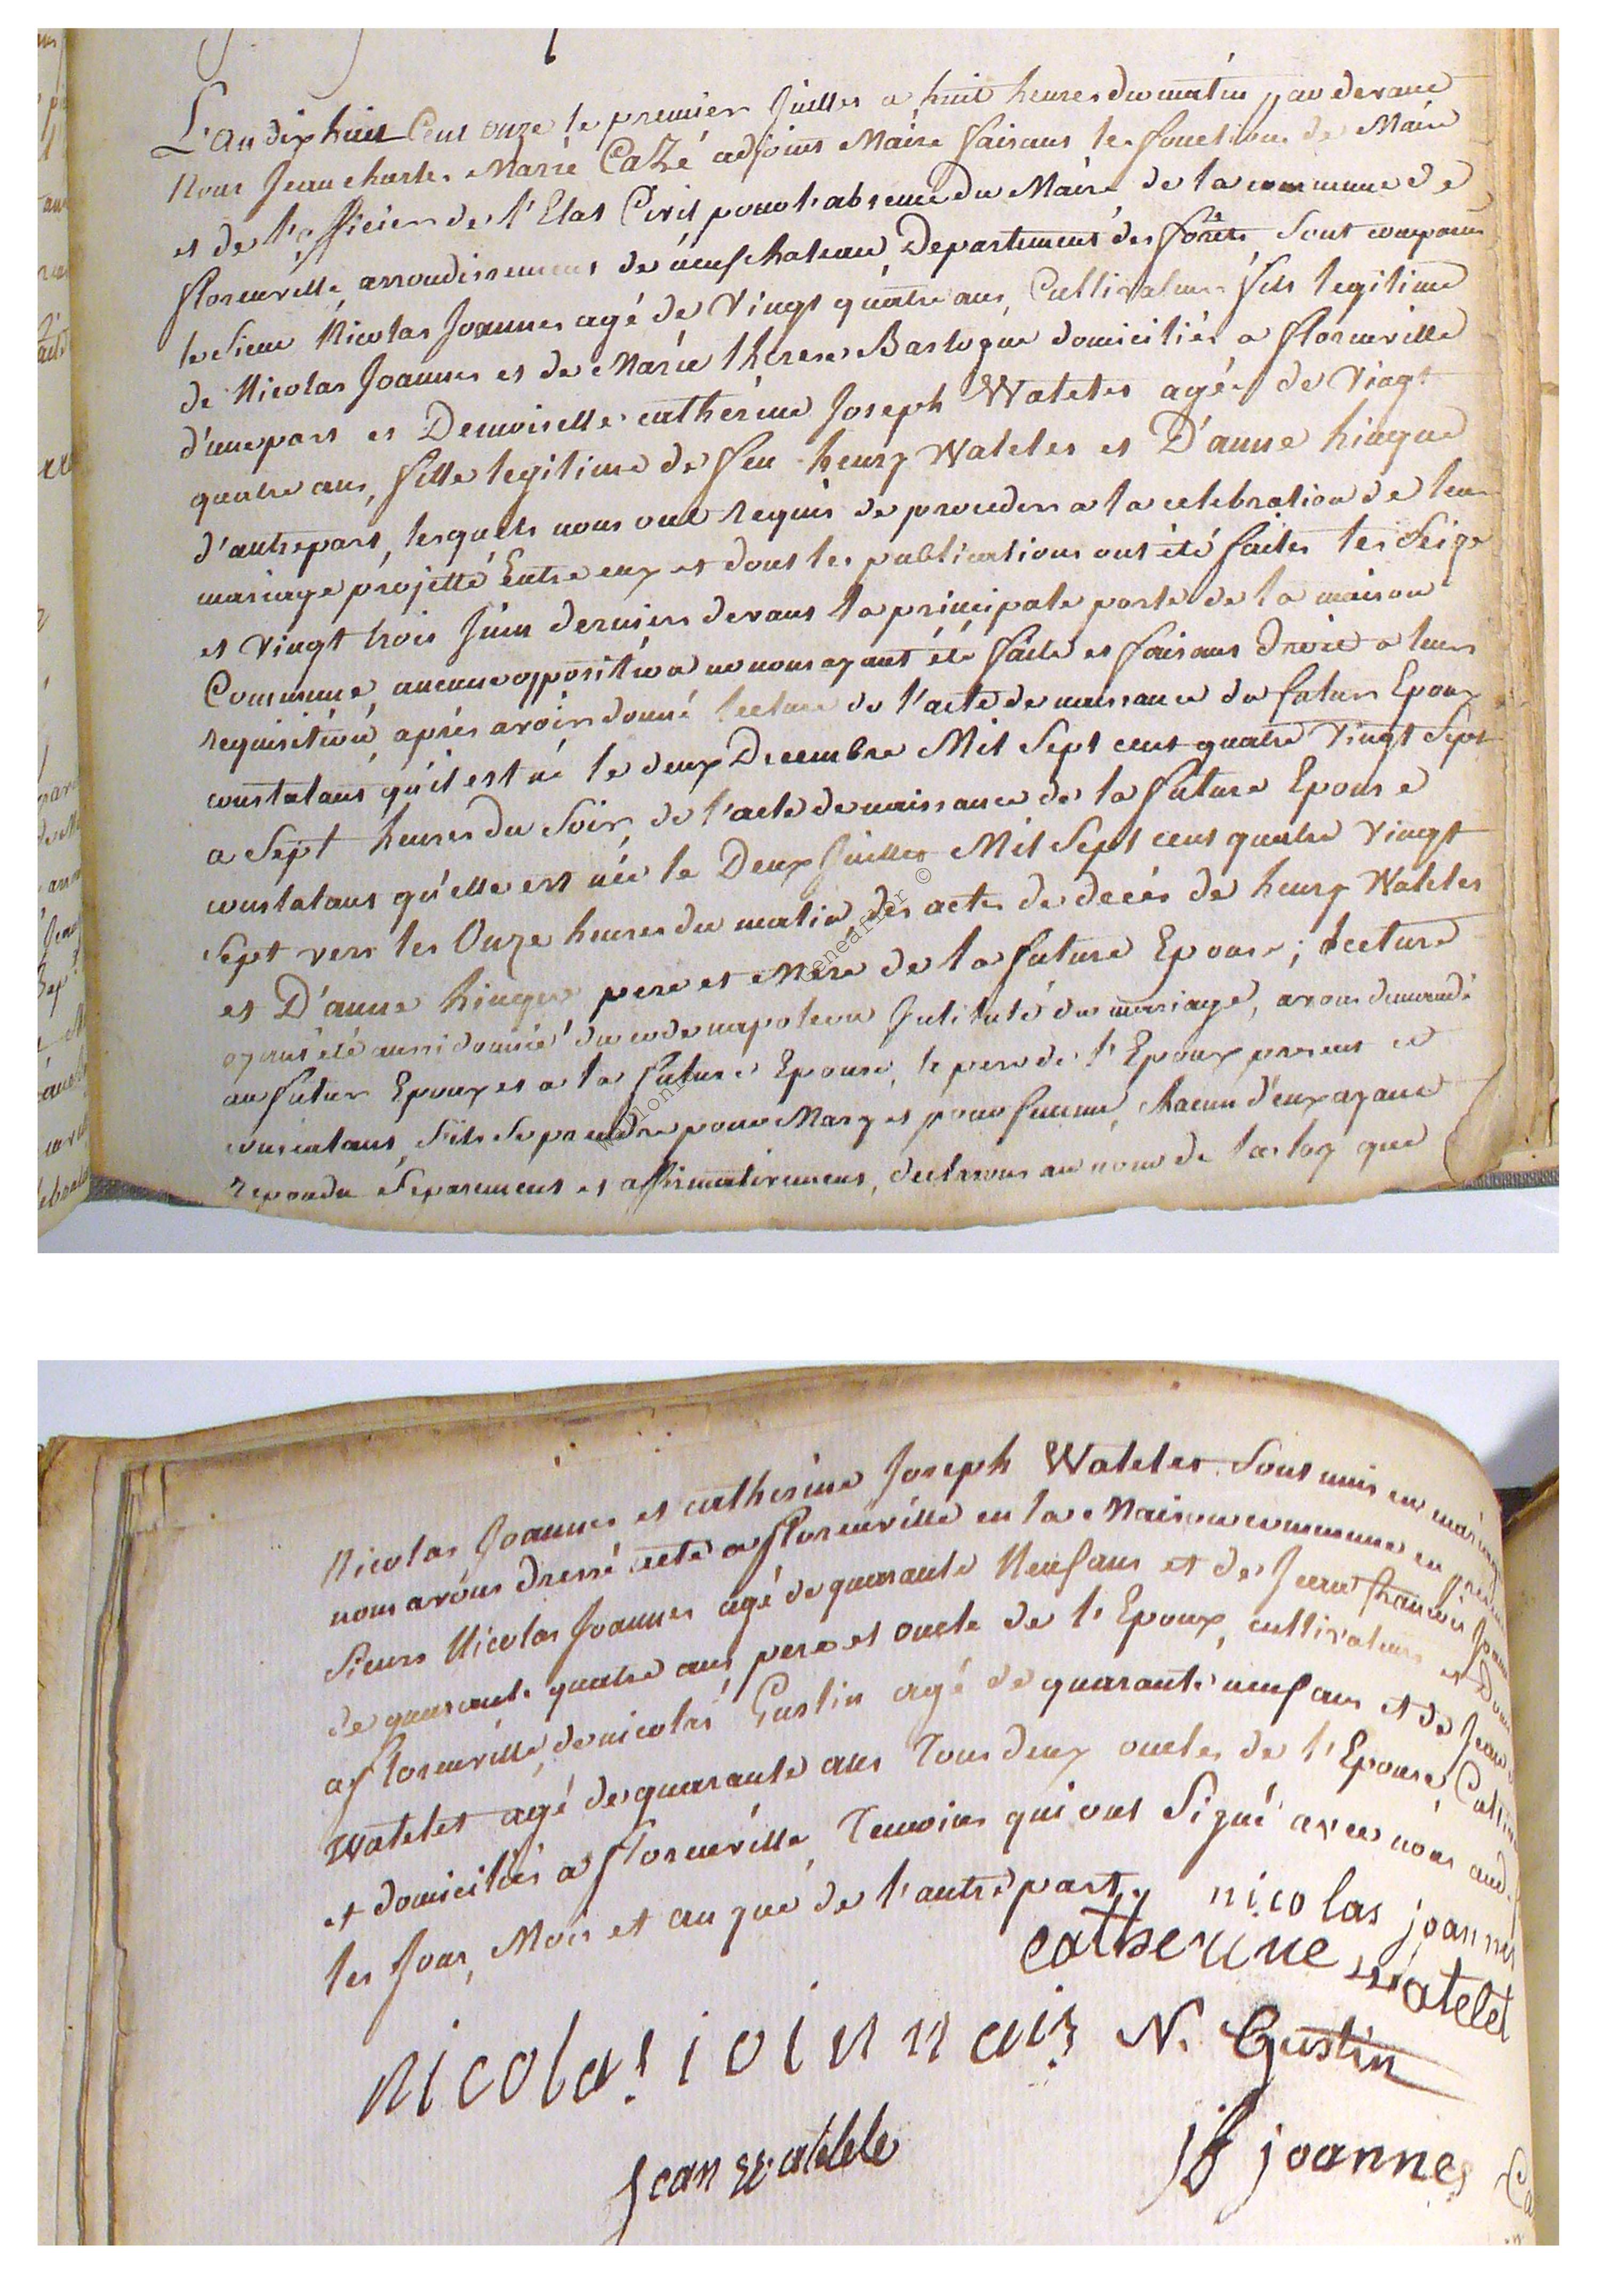 L'an dix huit Cent onze le premier Juillet a huit heures du matin, par devant
Nous Jean charles Marie CaZé adjoint Maire faisant les fonctions de Maire
et de l'officier de l'Etat Civil pour l'absence du Maire de la commune de
florenville, arrondissement de neufchateau, Departement des forêts, sont comparus
le sieur Nicolas Joannes agé de Vingt quatre ans, Cultivateur fils legitime
de Nicolas Joannes et de Marie therese Barlogne domiciliés a florenville
d'une part et Demoiselle catherine Joseph Watelet agée de Vingt
quatre ans, fille legitime de feu henry Watelet et D'anne hinque
d'autre part, lesquels nous ont requis de proceder a la celebration de leur
mariage projetté Entre eux et dont les publications ont été faites les Seize
et Vingt trois Juin dernier devant la principale porte de la maison
Commune, aucune opposition ne nous ayant été faite et faisant droit a leur
requisition, après avoir donné lecture de l'acte de naissance du futur Epoux
constatant qu'il est né le deux Decembre Mil Sept cent quatre Vingt Sept
a Sept heures du Soir, de l'acte de naissance de la future Epouse
constatant qu'elle est née le Deux Juillet Mil Sept cent quatre Vingt
Sept vers les Onze heures du matin, des actes de decés de henry Watelet
et D'anne hinque pere et Mere de la future Epouse; lecture
ayant été aussi donnée du code napoleon Intitulé du mariage, avons demandé
au futur Epoux et a la future Epouse, le pere de l'Epoux present et
consentant, s'ils se prendre pour Mary et pour femme, chacun d'eux ayant
repondu separement et affirmativement, declarons au nom de la loy que
Nicolas Joannes et catherine Joseph Watelet sont unis en mariage
nous avons dressé acte a florenville en la Maison commune en presence
sieurs Nicolas Joannes agé de quarante Neuf ans et de Jean françois Joannes
de quarante quatre ans, pere et oncle de l'Epoux, cultivateurs et Dom
a florenville, de nicolas Gustin agé de quarante neuf ans et de Jean
Watelet agé de quarante ans Tous deux oncles de l'Epouse, Cultiv
et domiciliés a florenville, Temoins qui ont Signé avec nous aud.
les Jour, Mois et an que de l'autre part.
nicolas joannes
catherine watelet
nicolas ioinnais N. Gustin
jean watelele jf joannes
Wallonia Geneaflor ©